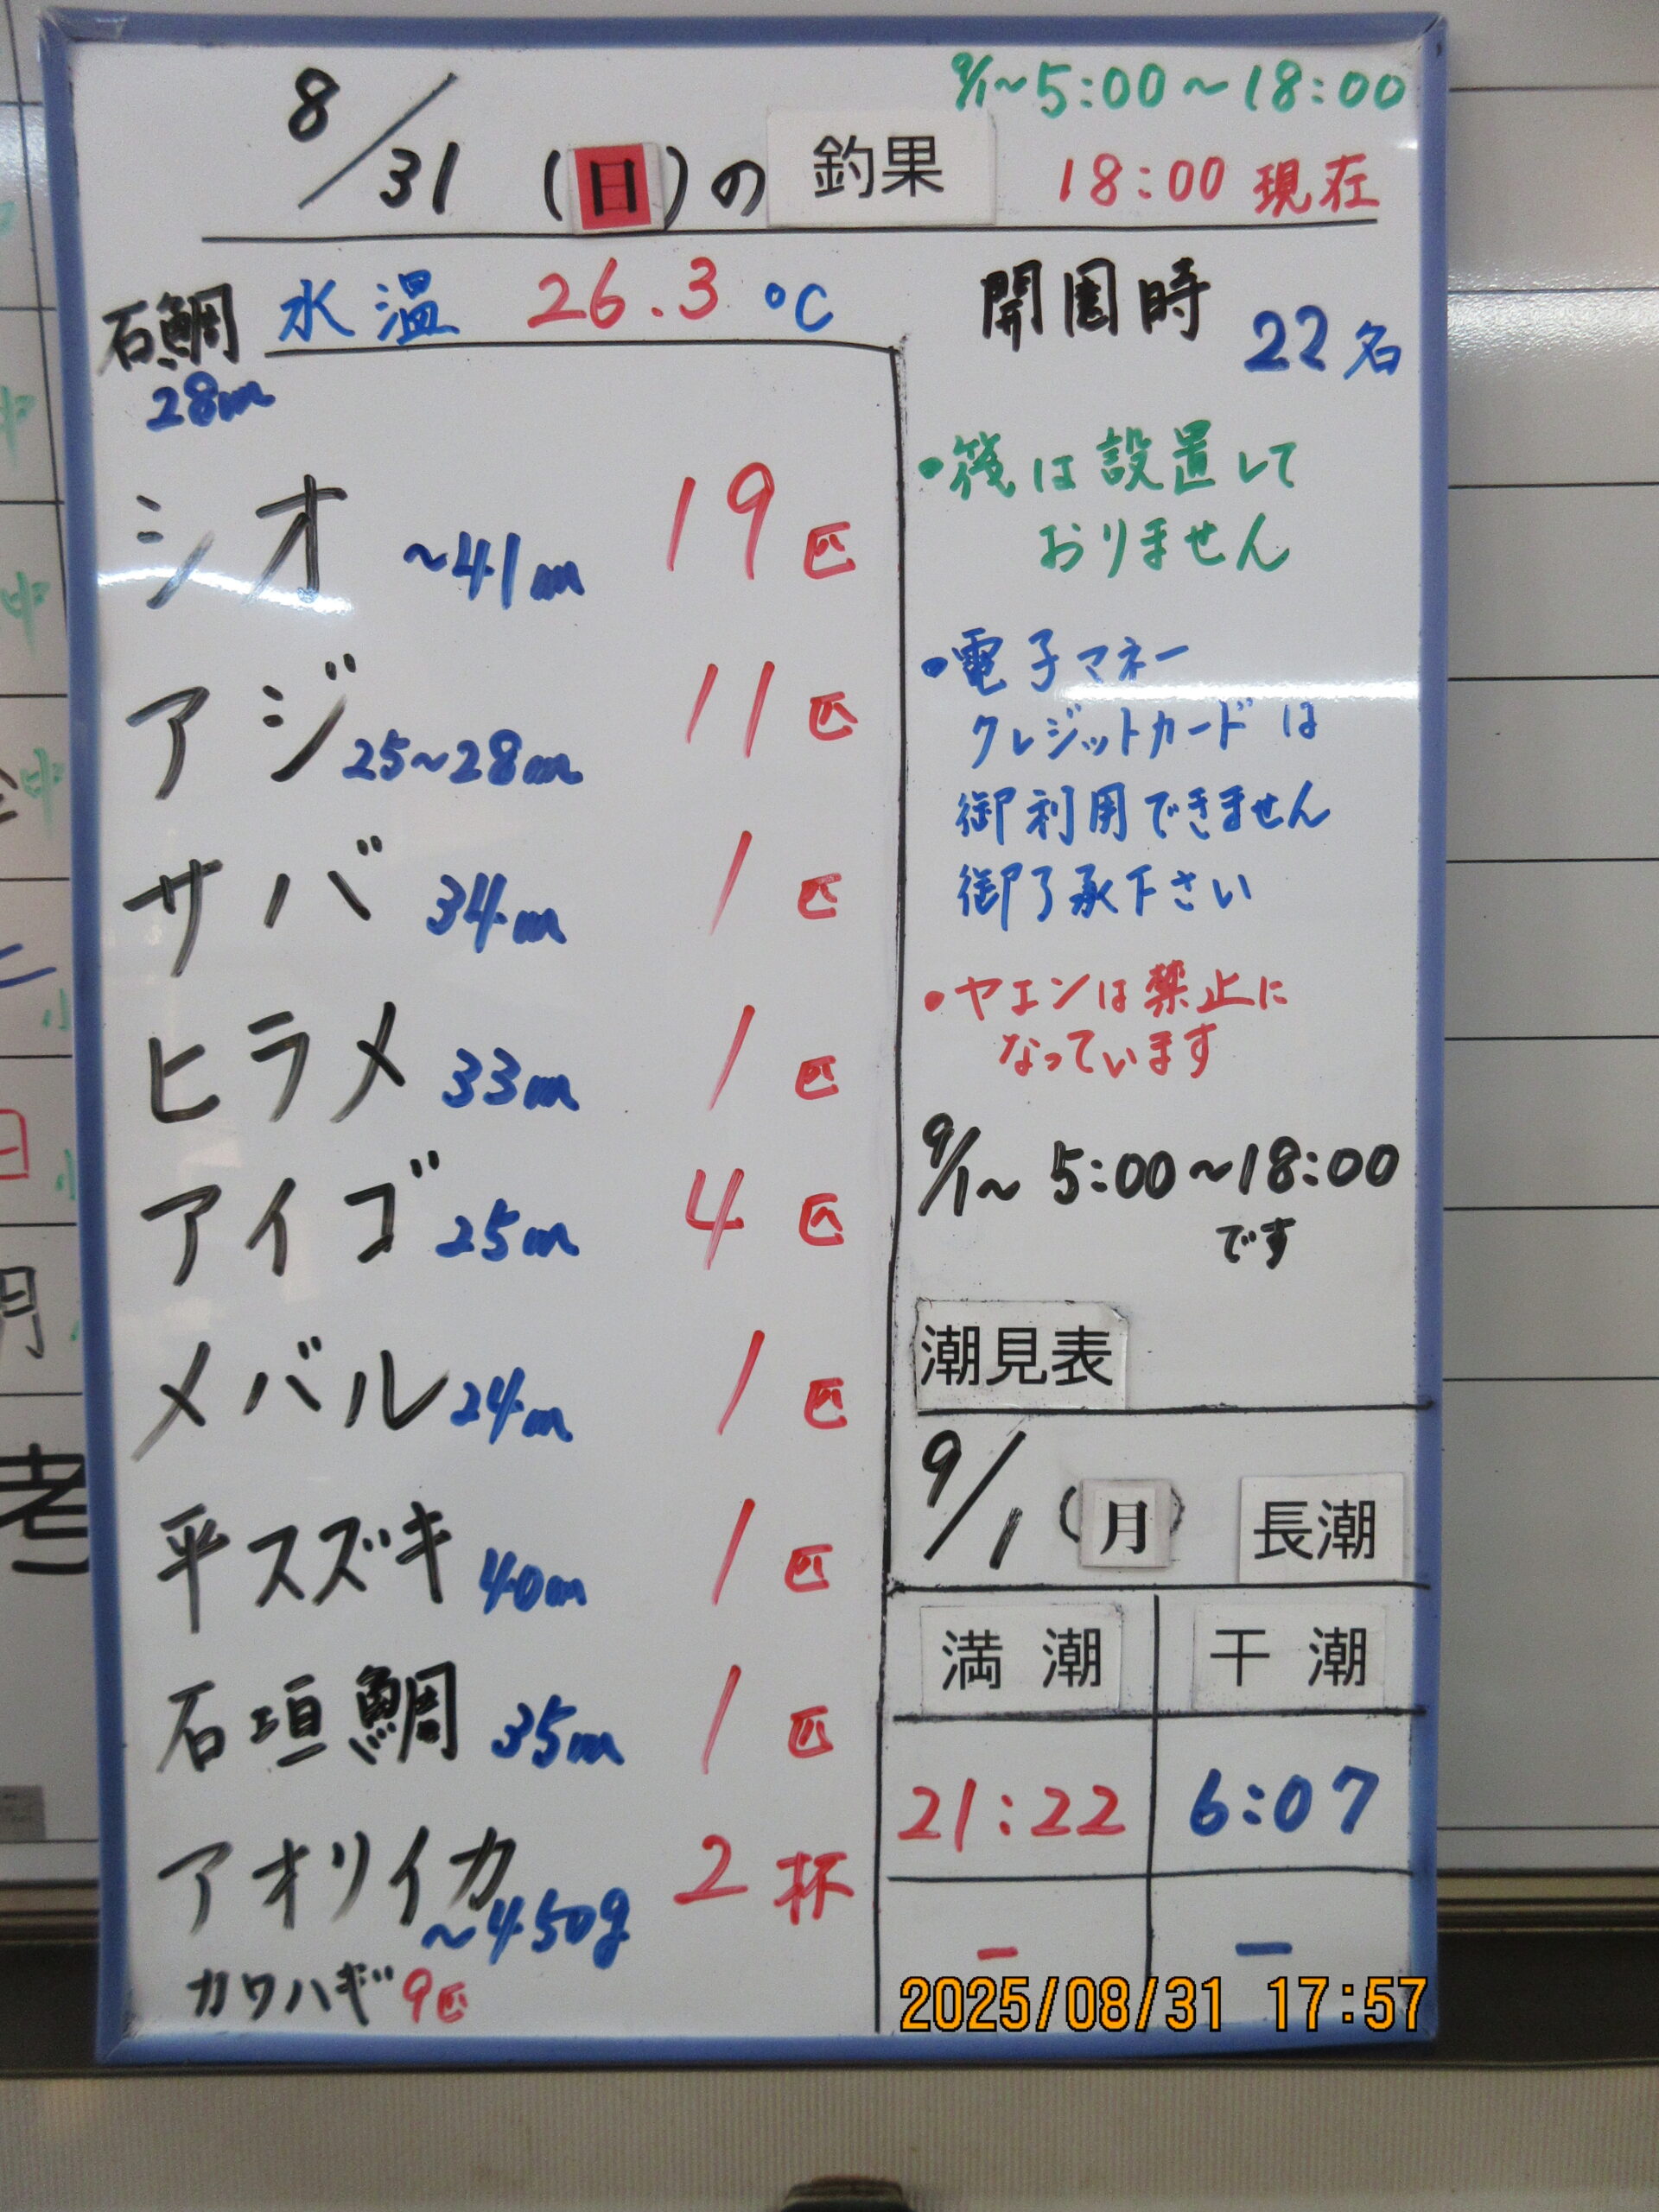 9/1~5:00~18:00
8/31 (日)の 釣果
18:00 現在
石鯛
28cm
水温 26.3 ℃
シオ ~41cm 19匹
アジ 25~28cm 11匹
サバ 34cm 1匹
ヒラメ 33cm 1匹
アイゴ 25cm 4匹
メバル 24cm 1匹
平スズキ 40cm 1匹
石垣鯛 35cm 1匹
アオリイカ ~450g 2杯
カワハギ 9匹
開園時
22名
・筏は設置して
おりません
・電子マネー
クレジットカードは
御利用できません
御了承下さい
・ヤエンは禁止に
なっています
9/1~ 5:00~18:00
です
潮見表
9/1 (月) 長潮
満潮 干潮
21:22 6:07
- -
2025/08/31 17:57